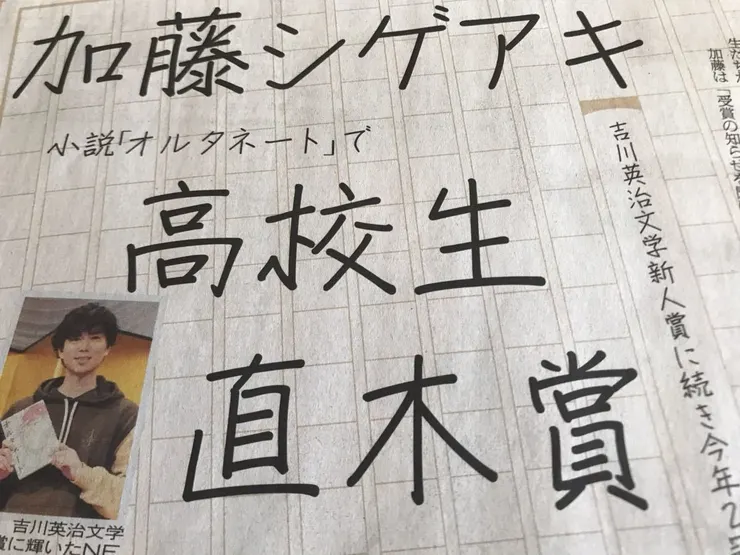 加藤シゲアキ
小説「オルタネート」で
高校生
直木賞
吉川英治文学新人賞に続き今年2
加藤は「受賞の知らせ
吉川英治文学
賞に輝いたNE